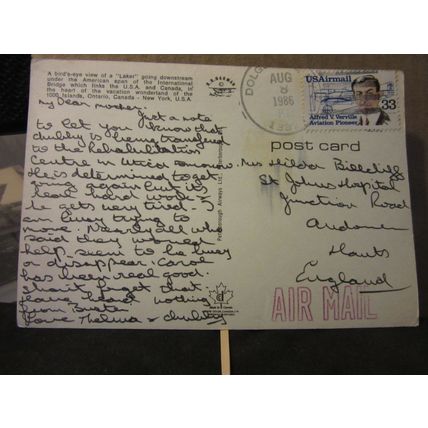 A bird's-eye view of a "Laker" going downstream
under the American span of the International
Bridge which links the U.S.A. and Canada, in
the heart of the vacation wonderland of the
1000 Islands, Ontario, Canada - New York, U.S.A.
My Dear mother.
Just a note
to let you know that
chubby is being transferred
to the Rehabilitation
Centre in Utica tomorrow.
He is determined to get
going again but it's
real hard work &
he gets very tired. I
am busy trying to
move. Nearly all who
said they would
help seem to be busy
or disappear. Carol
has been real good.
don't forget that
leave heard nothing
from
Love Thelma & chubby
DOLG
AUG
8
1986
USAirmail
33
Alfred V. Verville
Aviation Pioneer
post card
Mrs Hilda Billcliff
St Johns Hospital
Junction Road
Andover
Hants
England
AIR MAIL